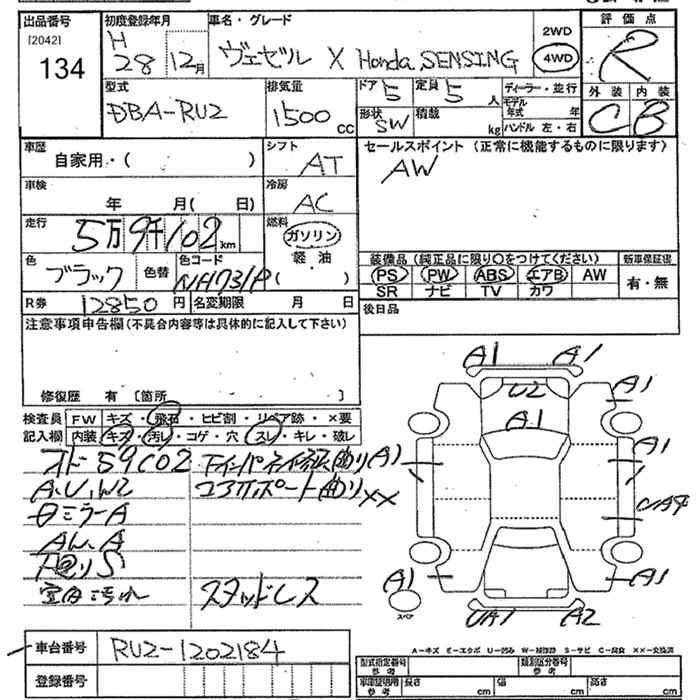 出品番号 初度登録年月 車名・グレード 評価点
[2042] 134
H 28 12月
ヴェゼル X Honda SENSING
2WD
4WD
R
型式 排気量 ドア 5 定員 5人 ディーラー・並行 外装 内装
DBA-RU2 1500cc
形状 SW 積載 kg
モデル年式 年
ハンドル 左・右
C B
車歴 シフト セールスポイント (正常に機能するものに限ります)
自家用・( ) AT
AW
車検 冷房
年 月( 日) AC
走行 燃料
5万9千102km ガソリン
軽油
( )
色 色替 色コード
ブラック NH731P
装備品 (純正品に限り○をつけてください) 新車保証書
PS PW ABS エアB AW 有・無
SR ナビ TV カワ
R券 12850円 名変期限 月 日
後日品
注意事項申告欄 (不具合内容等は具体的に記入して下さい)
修復歴 有 [箇所 ]
検査員 FW キズ・飛石・ヒビ割・リペア跡・×要
記入欄 内装 キズ・汚レ・コゲ・穴・スレ・キレ・破レ
59102
A.U.W2
コアサポート曲り××
ミラーA
AW.A
下回りS
室内汚れ スタッドレス
A1 A1
U2
A1
A1
A1
A1
A1
A1
A1
スペア
UA1 A2
A-キズ E-エクボ U-凹み W-補修跡 S-サビ C-腐食 ××-交換済
車台番号 RU2-1202184
登録番号
型式指定番号 参考 類別区分番号 参考
車庫証明用 参考 長さ cm 幅 cm 高さ cm